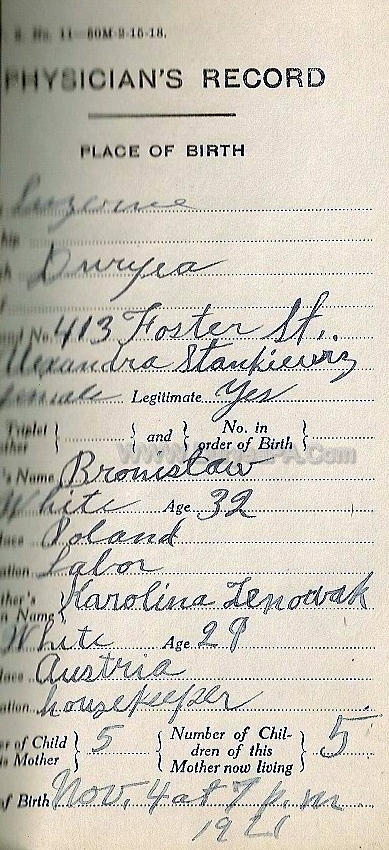 S. No. 11—60M-2-15-18.
PHYSICIAN'S RECORD
PLACE OF BIRTH
Luzerne
hip
Duryea
and No. 413 Foster St.
Alexandra Stankiewicz
female Legitimate Yes
Triplet and No. in
ther order of Birth
's Name Bronistaw
White Age 32
lace Poland
ation Labor
ther's Karolina Zenowak
n Name
White Age 29
lace Austria
ation housekeeper
er of Child 5 Number of Chil- 5
is Mother dren of this
Mother now living
of Birth Nov. 4 at 7 p.m
1921